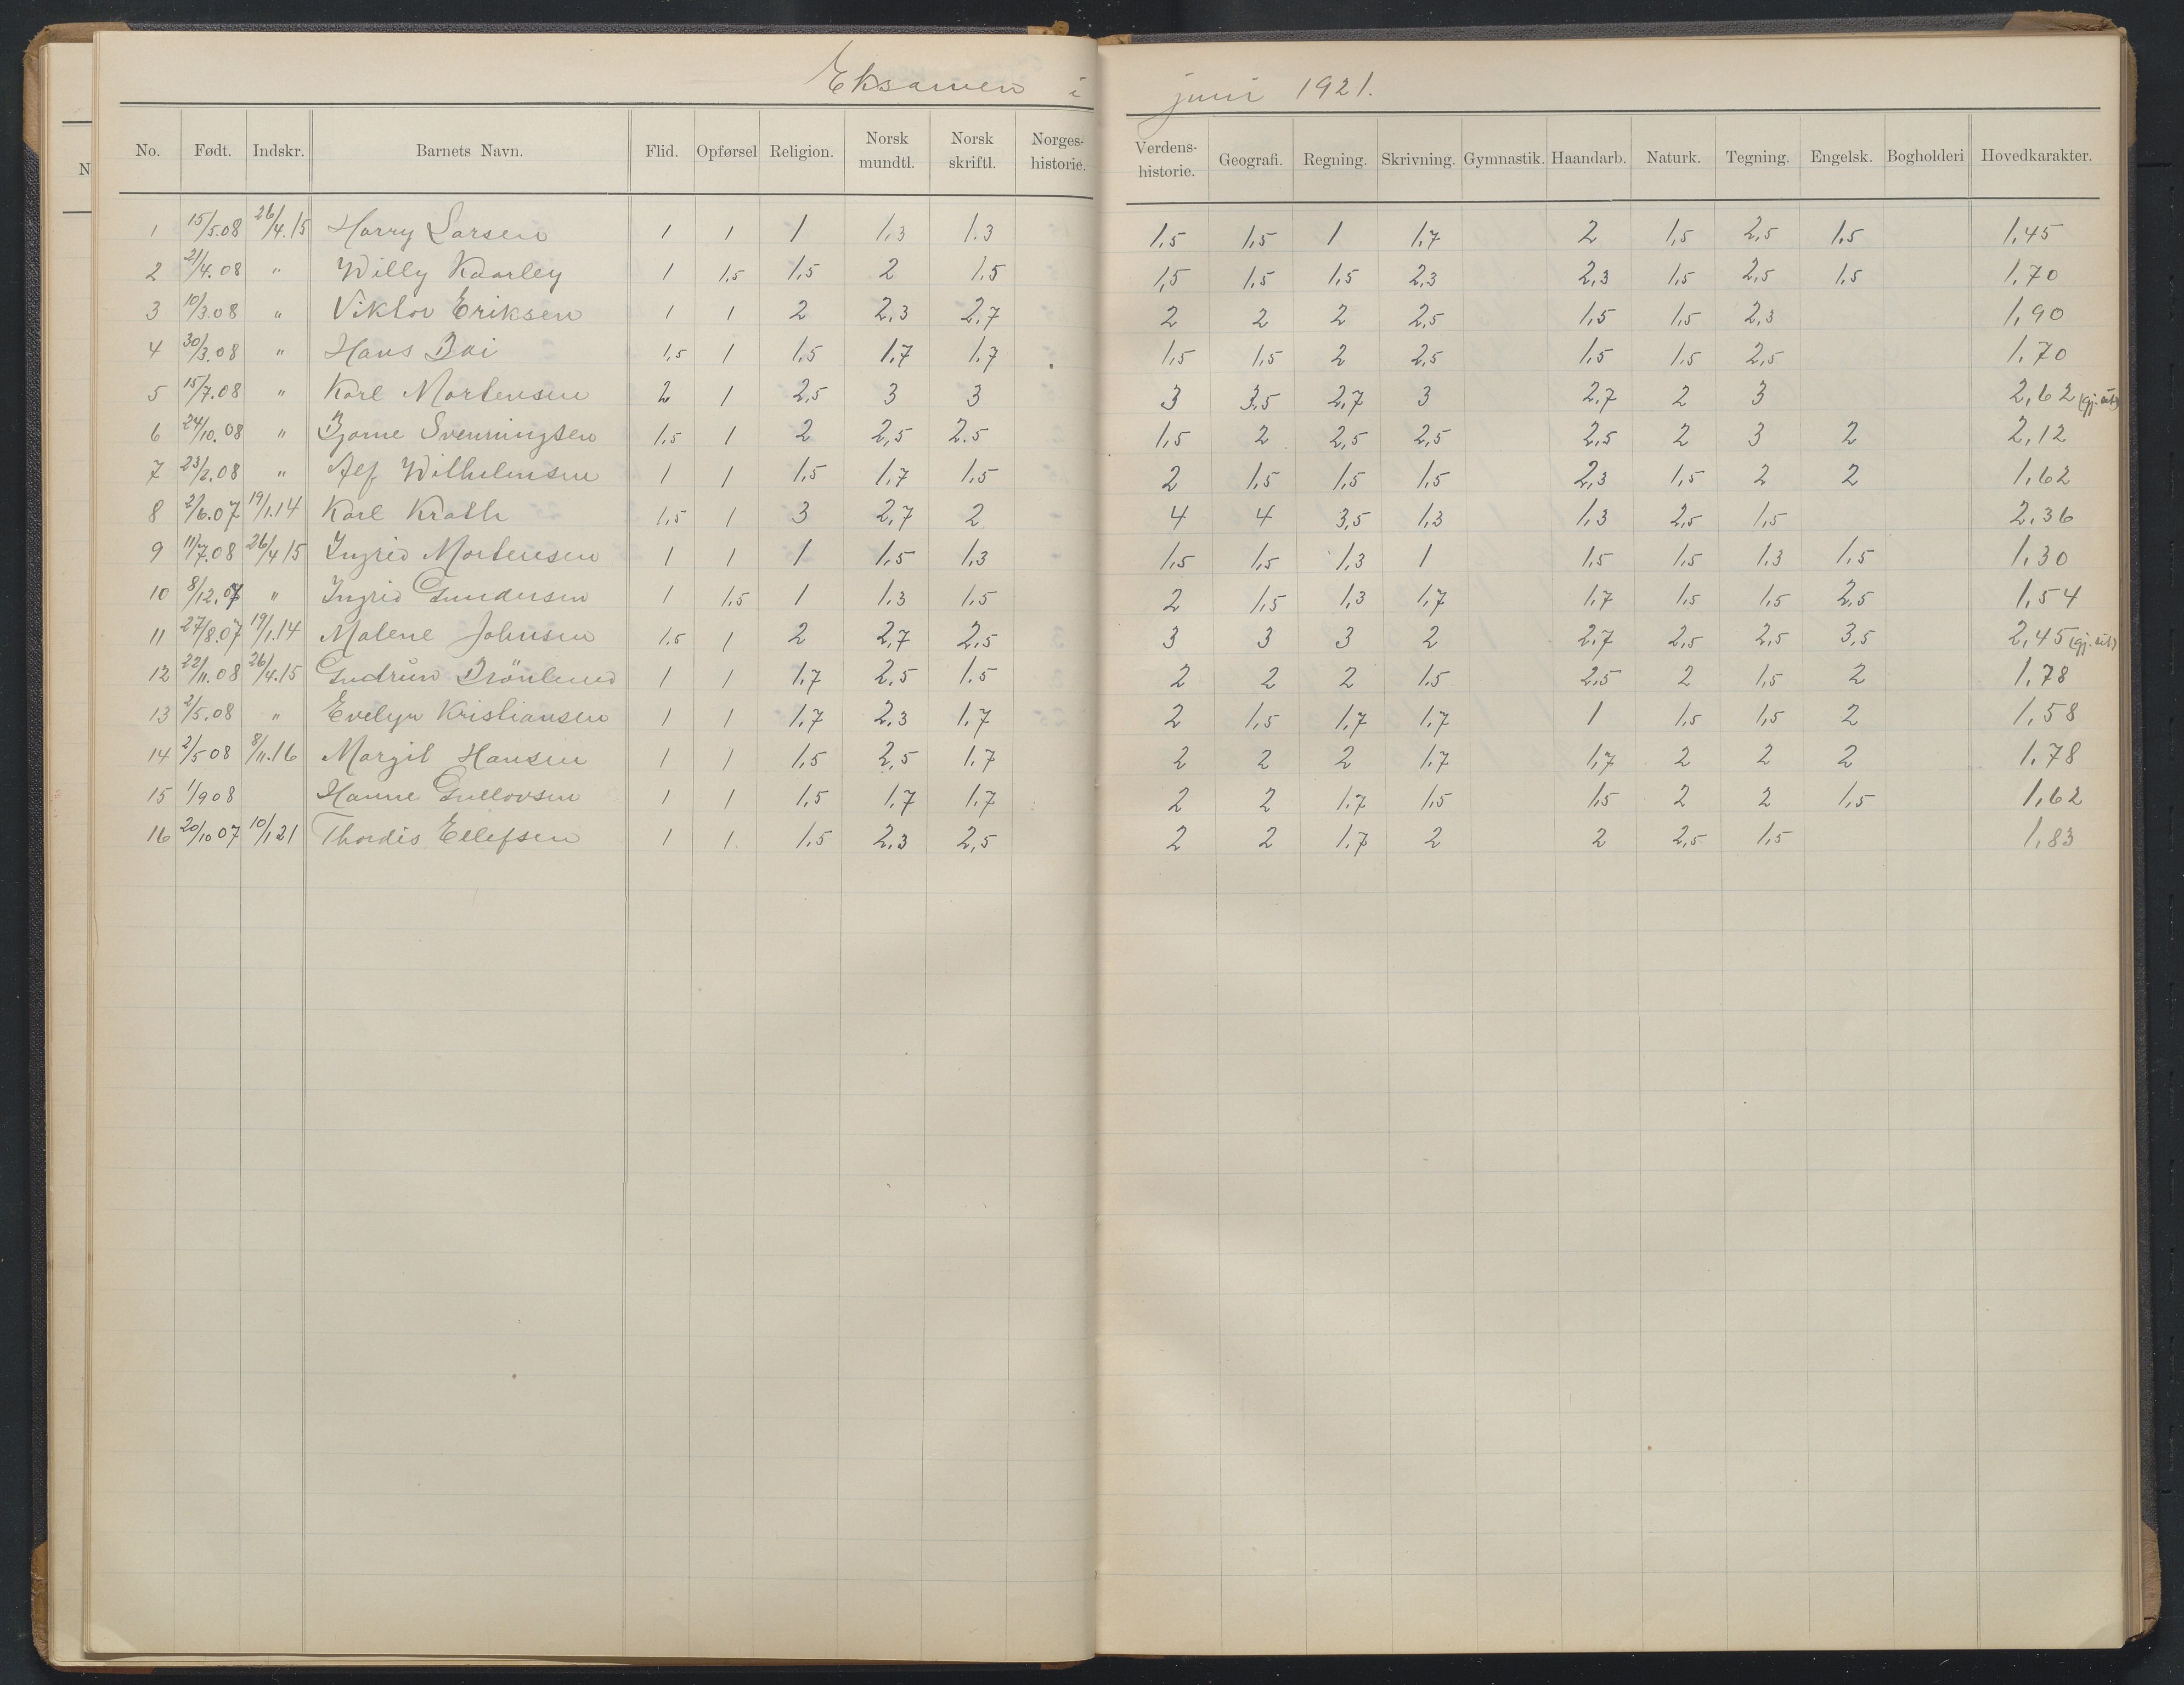 Eksamen i juni 1921.
No. Født. Indskr. Barnets Navn. Flid. Opførsel Religion. Norsk mundtl. Norsk skriftl. Norges-historie. Verdens-historie. Geografi. Regning. Skrivning. Gymnastik. Haandarb. Naturk. Tegning. Engelsk. Bogholderi Hovedkarakter.
N
1 15/5.08 26/4.15 Harry Larsen 1 1 1 1,3 1.3 1,5 1,5 1 1,7 2 1,5 2,5 1,5 1,45
2 21/4.08 " Willy Kaarley 1 1,5 1,5 2 1,5 1,5 1,5 1,5 2,3 2,3 1,5 2,5 1,5 1,70
3 10/3.08 " Viktor Eriksen 1 1 2 2,3 2,7 2 2 2 2,5 1,5 1,5 2,3 1,90
4 30/3.08 " Hans Boi 1,5 1 1,5 1,7 1,7 1,5 1,5 2 2,5 1,5 1,5 2,5 1,70
5 15/7.08 " Karl Mortensen 2 1 2,5 3 3 3 3,5 2,7 3 2,7 2 3 2,62 (gj. ut)
6 24/10.08 " Bjarne Svenningsen 1,5 1 2 2,5 2.5 1,5 2 2,5 2,5 2,5 2 3 2 2,12
7 23/2.08 " Alf Wilhelmsen 1 1 1,5 1,7 1,5 2 1,5 1,5 1,5 2,3 1,5 2 2 1,62
8 2/6.07 19/1.14 Karl Krath 1,5 1 3 2,7 2 4 4 3,5 1,3 1,3 2,5 1,5 2,36
9 11/7.08 26/4 15 Ingrid Mortensen 1 1 1 1,5 1,3 1,5 1,5 1,3 1 1,5 1,5 1,3 1,5 1,30
10 8/12.07 " Ingrid Gundersen 1 1,5 1 1,3 1,5 2 1,5 1,3 1,7 1,7 1,5 1,5 2,5 1,54
11 27/8.07 19/1.14 Malene Johnsen 1,5 1 2 2,7 2,5 3 3 3 2 2,7 2,5 2,5 3,5 2,45 (gj. ut)
12 22/11.08 26/4.15 Gudrun Brönlund 1 1 1,7 2,5 1.5 2 2 2 1,5 2,5 2 1,5 2 1,78
13 2/5.08 " Evelyn Kristiansen 1 1 1,7 2,3 1,7 2 1,5 1,7 1,7 1 1,5 1,5 2 1,58
14 2/5 08 8/11.16 Margit Hansen 1 1 1,5 2,5 1,7 2 2 2 1,7 1,7 2 2 2 1,78
15 1/9 08 Hanne Gullovsen 1 1 1,5 1,7 1,7 2 2 1,7 1,5 1,5 2 2 1,5 1,62
16 20/10 07 10/1 21 Thordis Ellefsen 1 1 1,5 2,3 2,5 2 2 1,7 2 2 2,5 1,5 1,83